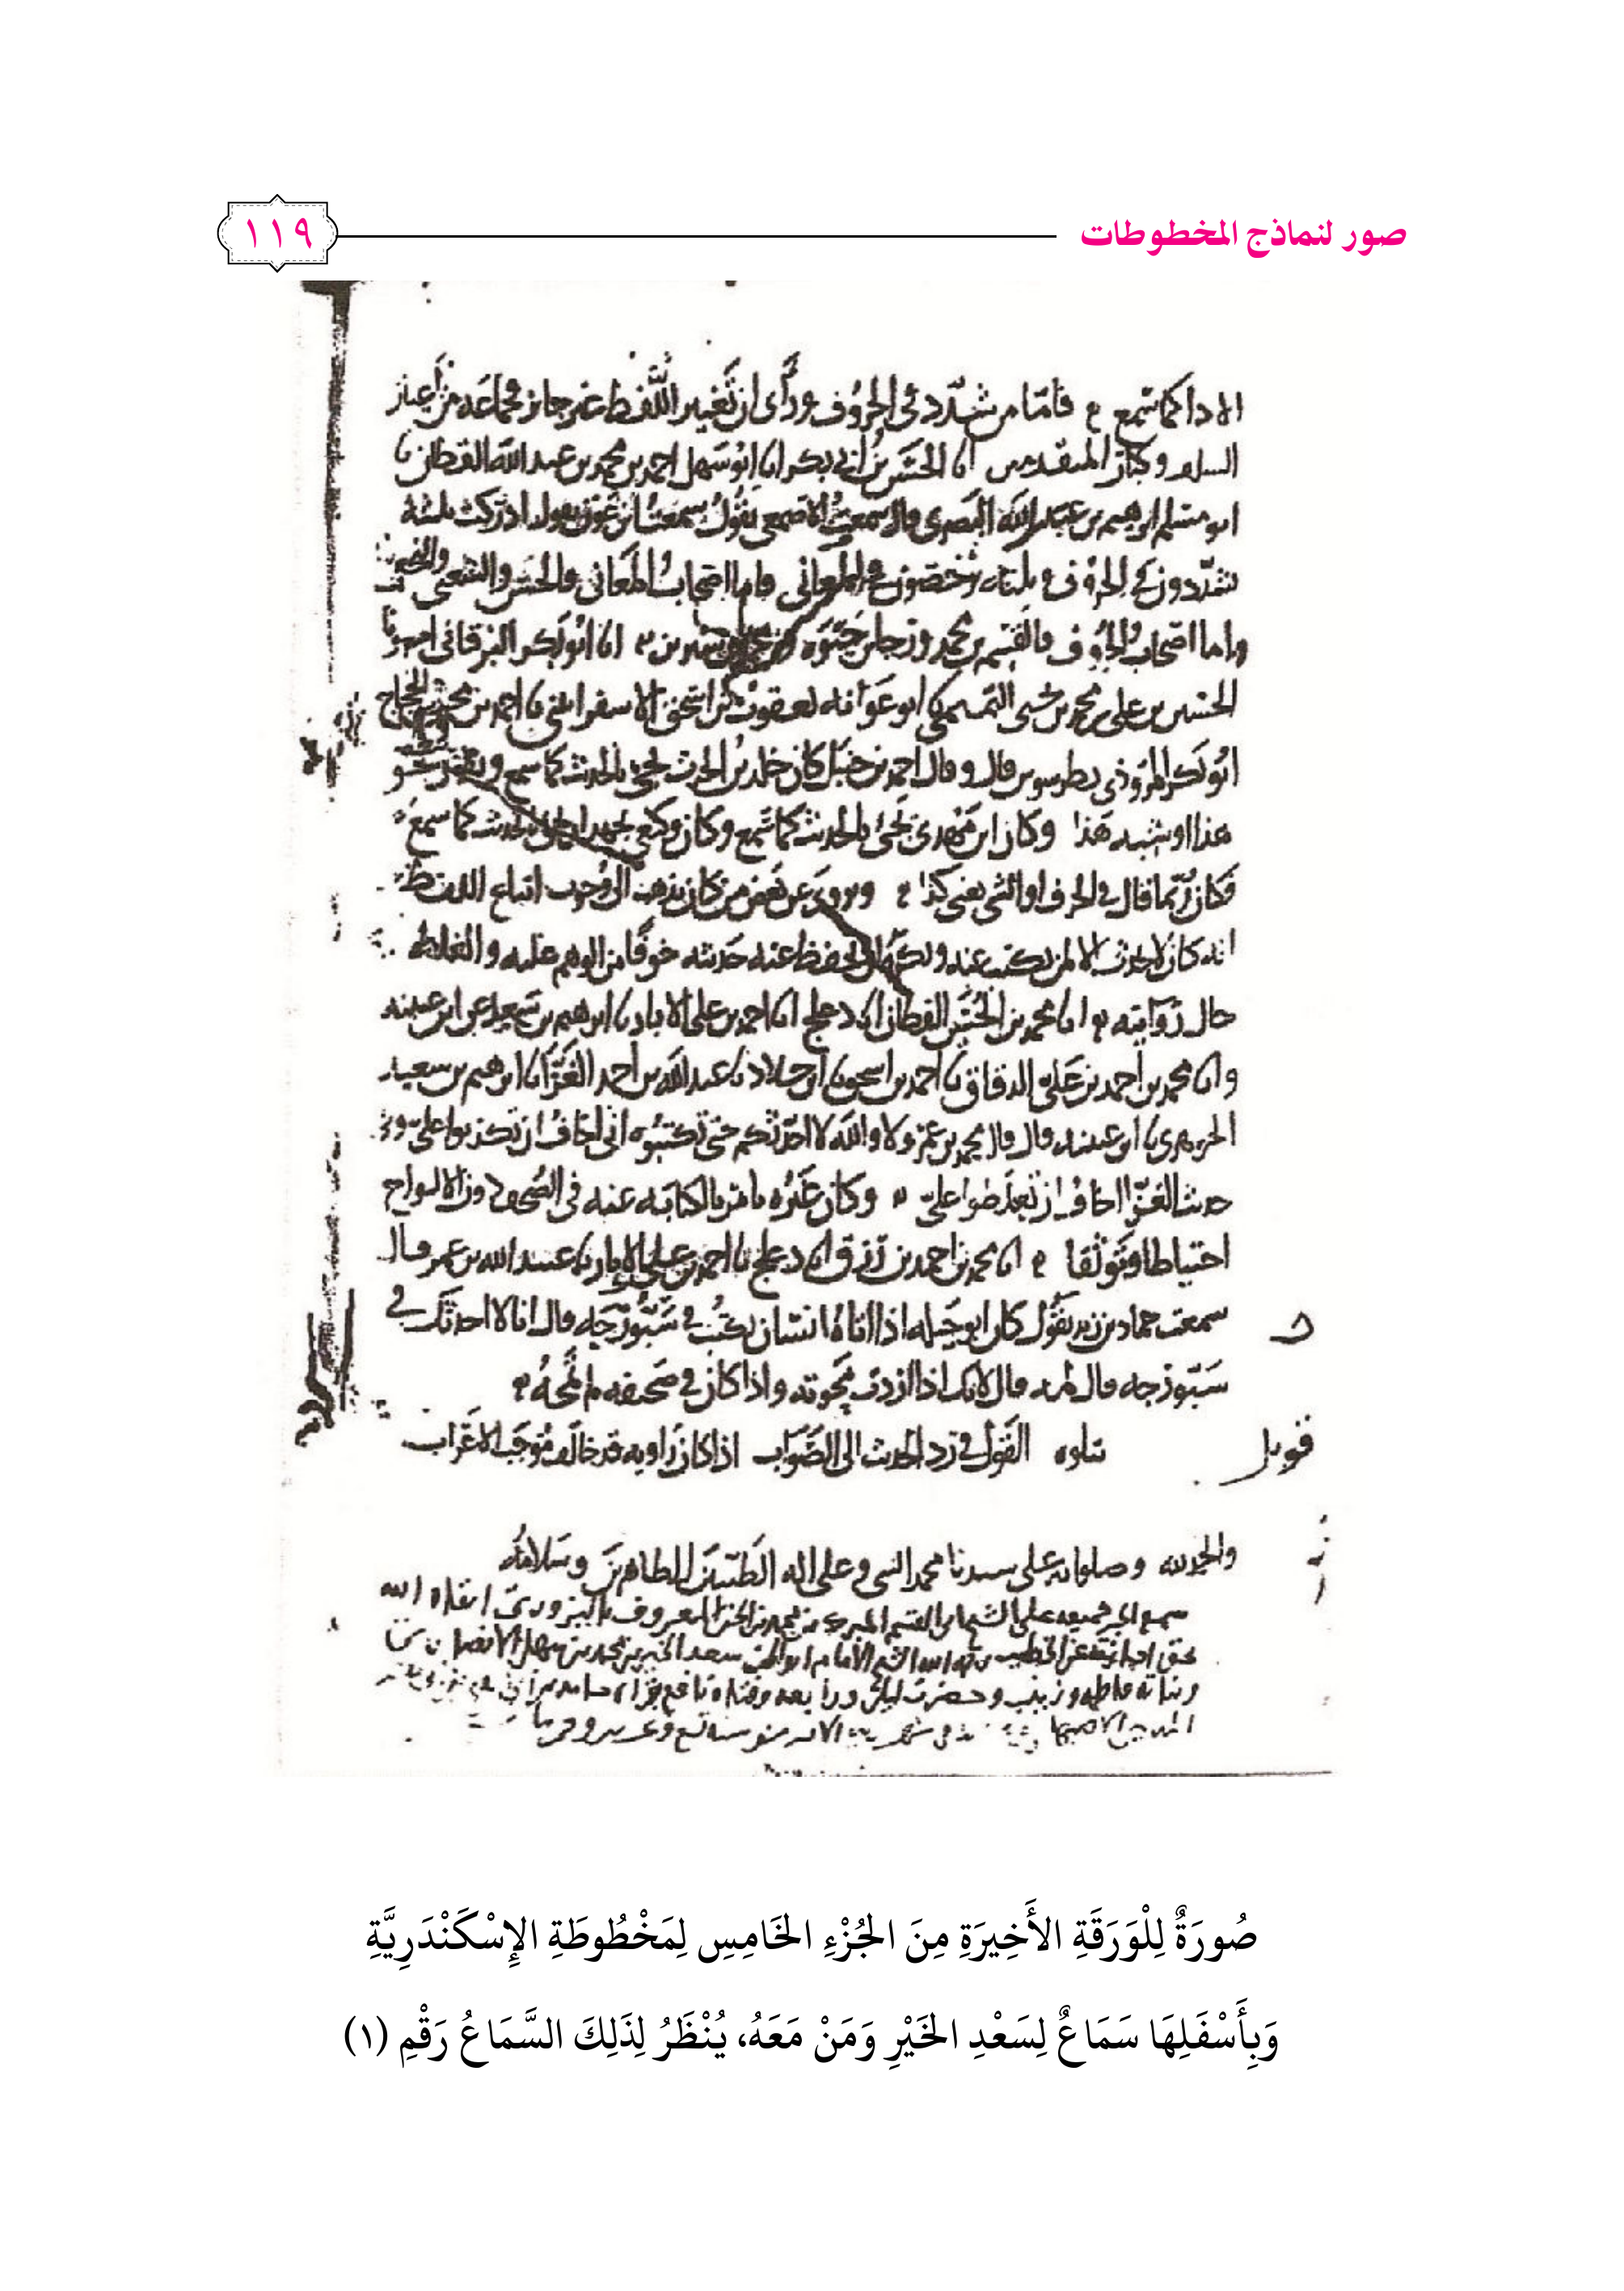 صور لنماذج المخطوطات
١١٩
الاداكما سمع فاما من شدد في الحروف ورأى ان تغيير اللفظ غير جائز فجماعة من اعيان
السلف وكبار المتقدمين انا الحسن بن ابي بكر انا ابو سهل احمد بن محمد بن عبد الله القطان نا
ابو مسلم ابرهيم بن عبد الله البصري قال سمعت الاصمعي يقول سمعت ابن عون يقول ادركت ثلثة
يشددون في الحروف وثلثة يرخصون في المعاني فاما اصحاب المعاني فالحسن والشعبي والنخعي
واما اصحاب الحروف فالقسم بن محمد ورجا بن حيوة ومحمد بن سيرين انا ابو بكر البرقاني
الحسين بن علي بن محمد بن يحيى التميمي نا ابو عوانة يعقوب بن اسحق الاسفرائني نا احمد بن محمد بن الحجاج
ابو بكر المروذي بطرسوس قال وقال احمد بن حنبل كان خلد بن الحرث يجيء بالحديث كما سمع
هذا او شبه هذا وكان ابن مهدي يجيء بالحديث كما سمع وكان وكيع يجهد ان يجيء بالحديث كما سمع
فكان ربما قال في الحرف او الشيء يعني كذا وروي عن بعض من كان يذهب الى وجوب اتباع اللفظ
انه كان لا يحدث الا لمن يكتب عنه ويكره ان يحفظ عنه حديثه خوفا من الوهم عليه والغلط
حال روايته انا محمد بن الحسين القطان انا دعلج انا احمد بن علي الابار نا ابرهيم بن سعيد عن ابن عيينه
وانا محمد بن احمد بن علي الدقاق نا احمد بن اسحق نا ابن خلاد نا عبد الله بن احمد الغزاء نا ابرهيم بن سعيد
الجوهري نا ابن عيينه قال قال محمد بن عمرو لا والله لا احدثكم حتى تكتبوه اني اخاف ان تكذبوا علي
حديث الغزا اخاف ان تغلطوا علي وكان غيره يامر بالكتابه عنه في الصحف دون الالواح
احتياطا وتوثقا انا محمد بن احمد بن رزق انا دعلج نا احمد بن علي الابار نا عبيد الله بن عمر قال
سمعت حماد بن زيد يقول كان ابو جبله اذا اتاه انسان يكتب في سبورجه قال انا لا احدثك في
سبورجه قال لمه قال لانك اذا اردت محوته واذا كان في صحيفه لم تمحه
قوبل
يتلوه القول في رد الحديث الى الصواب اذا كان راويه قد خالف موجب الاعراب
والحمد لله وصلواته على سيدنا محمد النبي وعلى اله الطيبين الطاهرين وسلامه
سمع الجزء جميعه على الشيخ ابي القسم
الشيخ الامام ابو الحسن سعد الخير بن محمد بن سهل الانصاري
وبناته فاطمه وزينب وحضرت ليلى ورابعه وفتاه نافع
صُورَةٌ لِلْوَرَقَةِ الأَخِيرَةِ مِنَ الجُزْءِ الخَامِسِ لِمَخْطُوطَةِ الإِسْكَنْدَرِيَّةِ
وَبِأَسْفَلِهَا سَمَاعٌ لِسَعْدِ الخَيْرِ وَمَنْ مَعَهُ، يُنْظَرُ لِذَلِكَ السَّمَاعُ رَقْمِ (١)